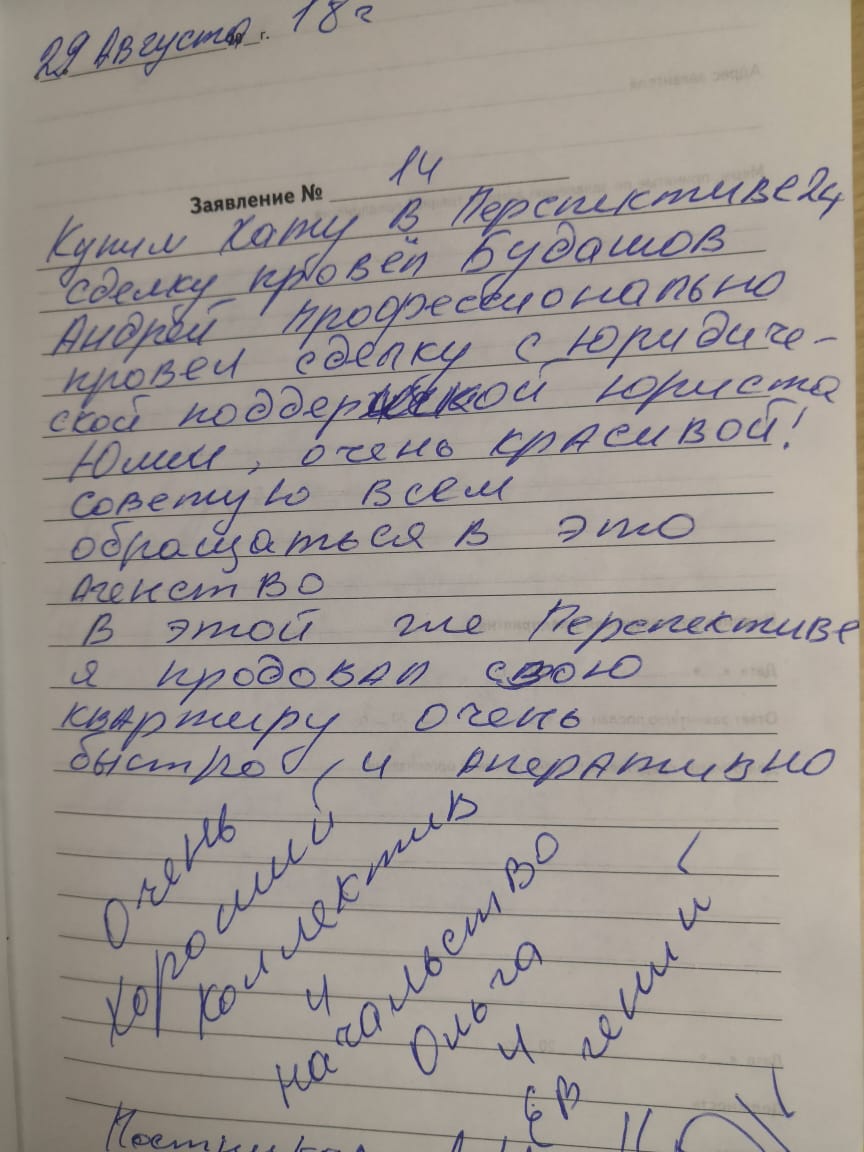 29 Августа 20 г. 18 г
Заявление № 14
Купил Хату в Перспективе24
сделку провёл Будашов
Андрей Профессионально
провел сделку с юридиче-
ской поддержкой юриста
Юлии, очень красивой!
советую всем
обращаться в это
Агенство
В этой же Перспективе
я продовал свою
квартиру очень
быстро и аперативно
Очень
хороший
коллектив
и
начальство
Ольга
и
Евгений